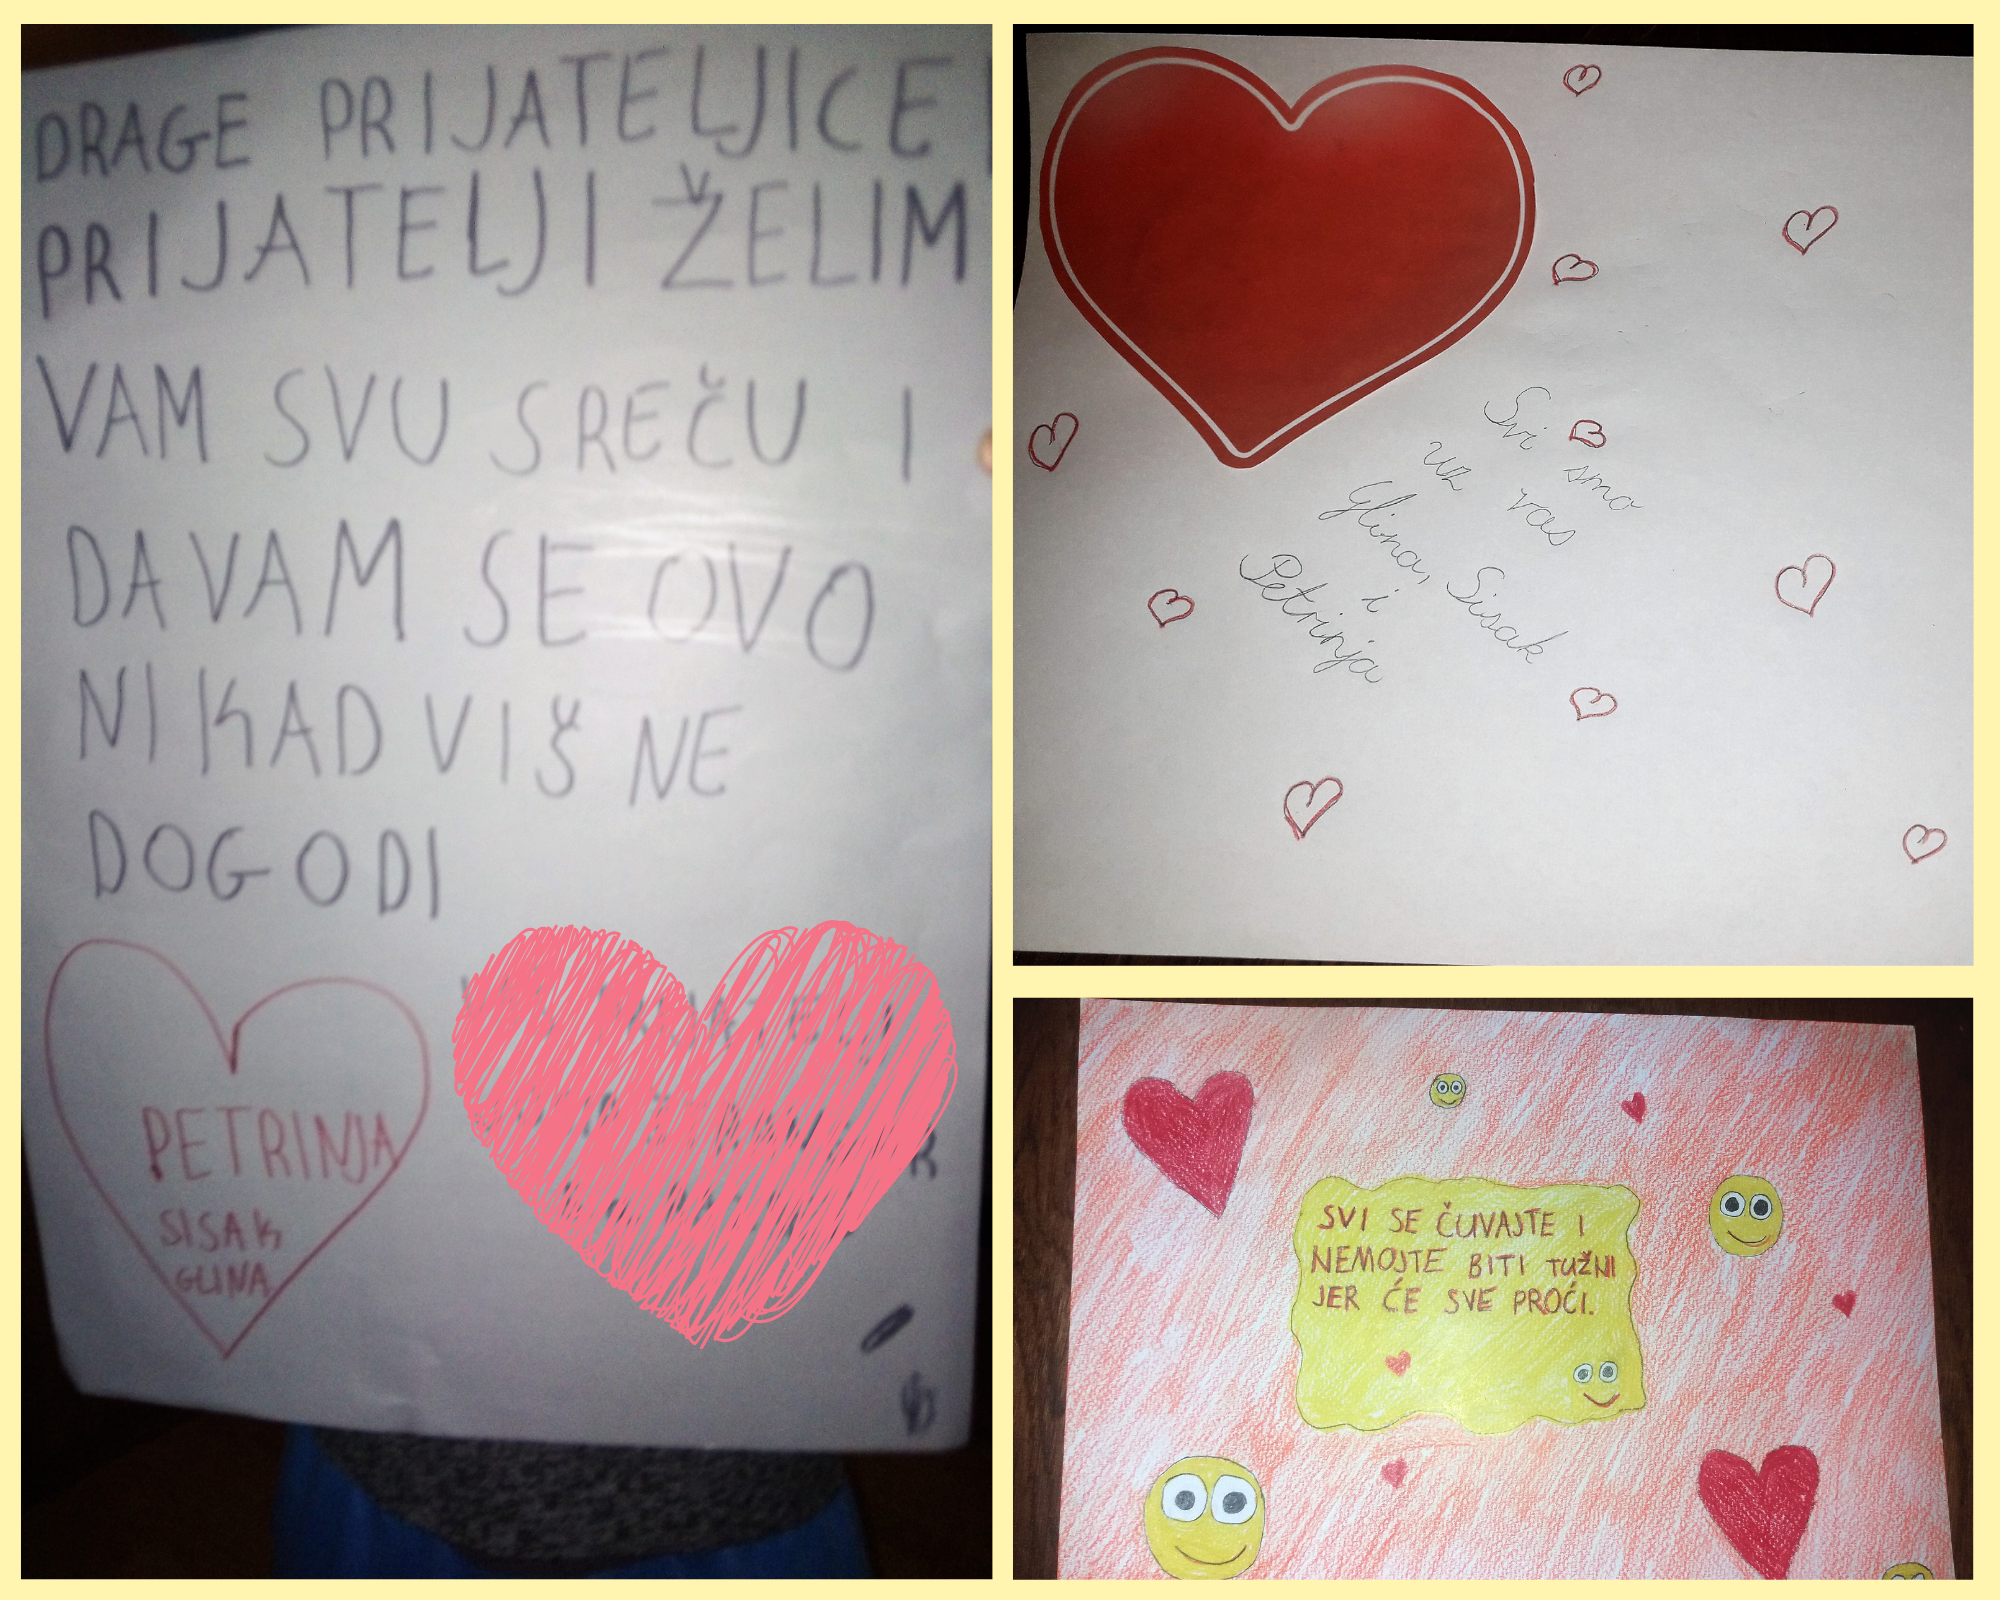 DRAGE PRIJATELJICE
PRIJATELJI ŽELIM
VAM SVU SREČU I
DA VAM SE OVO
NIKAD VIŠ NE
DOGODI
PETRINJA
SISAK
GLINA
Svi smo
uz vas
Glina, Sisak
i
Petrinja
SVI SE ČUVAJTE I
NEMOJTE BITI TUŽNI
JER ĆE SVE PROĆI.